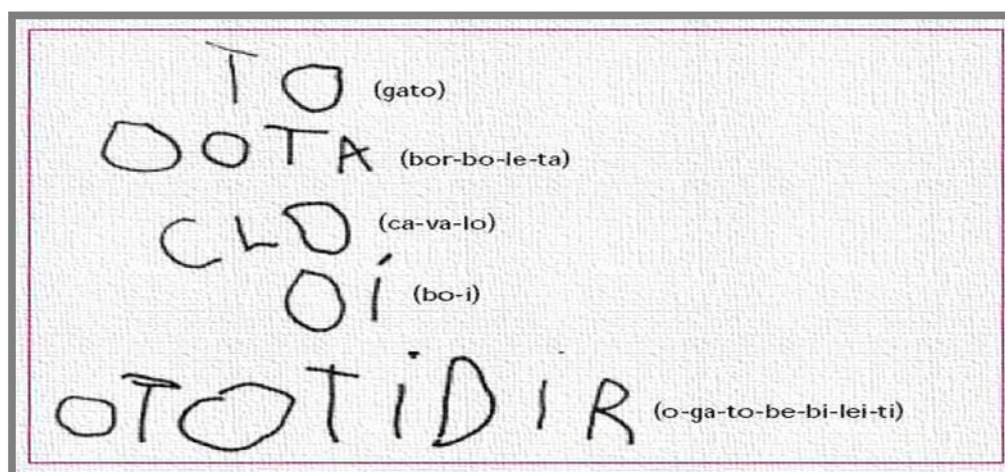 TO (gato)
OOTA (bor-bo-le-ta)
CLO (ca-va-lo)
OÍ (bo-i)
OTOTiDIR (o-ga-to-be-bi-lei-ti)